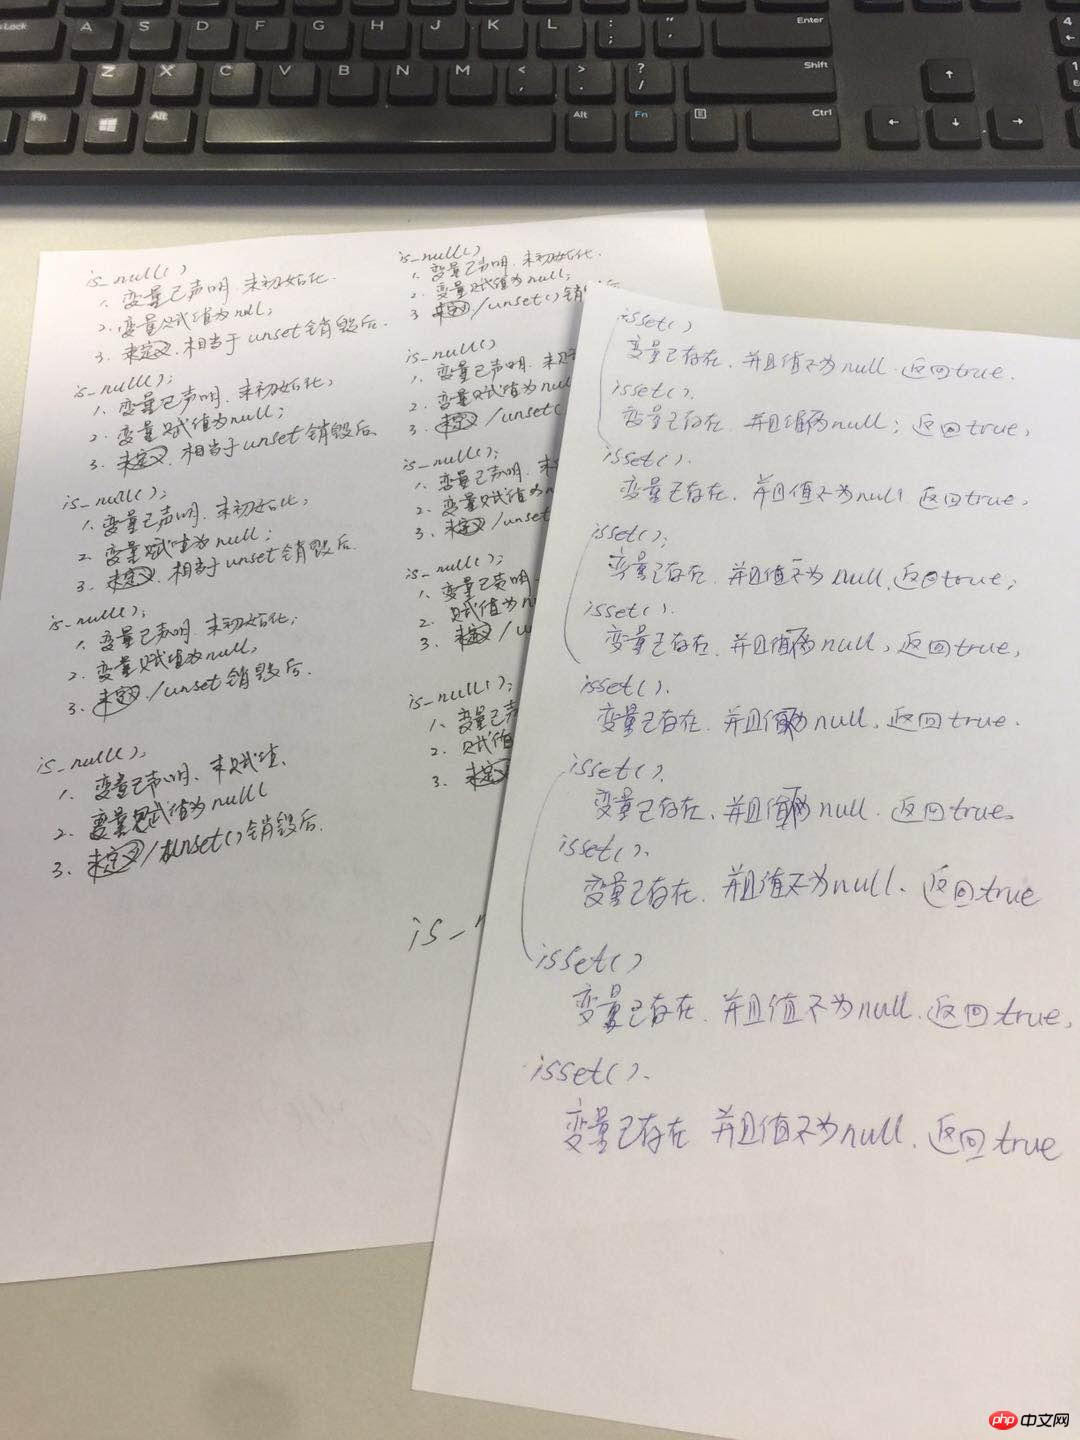 Lock A S D F G H J K L : ; " ' Enter
Z X C V B N M < , > . ? / Shift
Fn Alt Alt Fn Ctrl
is_null()
1. 变量已声明.未初始化.
2. 变量赋值为null;
3. 未定义.相当于unset销毁后.
is_null();
1. 变量已声明.未初始化;
2. 变量赋值为null;
3. 未定义.相当于unset销毁后.
is_null();
1. 变量已声明.未初始化;
2. 变量赋值为null;
3. 未定义.相当于unset销毁后.
is_null();
1. 变量已声明.未初始化;
2. 变量赋值为null,
3. 未定义./unset销毁后.
is_null().
1. 变量已声明、未赋值.
2. 变量赋值为null
3. 未定义/unset()销毁后.
is_null()
1. 变量已声明.未初始化.
2. 变量赋值为null;
3 未定义/unset()销
is_null()
1. 变量已声明.未
2. 变量赋值为nul
3. 未定义/unset(
is_null();
1. 变量已声明.未
2. 变量赋值为n
3. 未定义/unset
is_null();
1. 变量已声明.
2. 赋值为n
3. 未定义/u
is_null();
1. 变量已声
2. 赋值
3. 未定义
is_
isset()
变量已存在.并且值不为null.返回true.
isset().
变量已存在.并且值不为null;返回true,
isset().
变量已存在.并且值不为null 返回true,
isset();
变量已存在.并且值不为null,返回true;
isset().
变量已存在.并且值不为null,返回true,
isset().
变量已存在.并且值不为null,返回true.
isset().
变量已存在.并且值不为null.返回true.
isset().
变量已存在.并且值不为null、返回true
isset()
变量已存在.并且值不为null.返回true,
isset().
变量已存在 并且值不为null.返回true
php 中文网